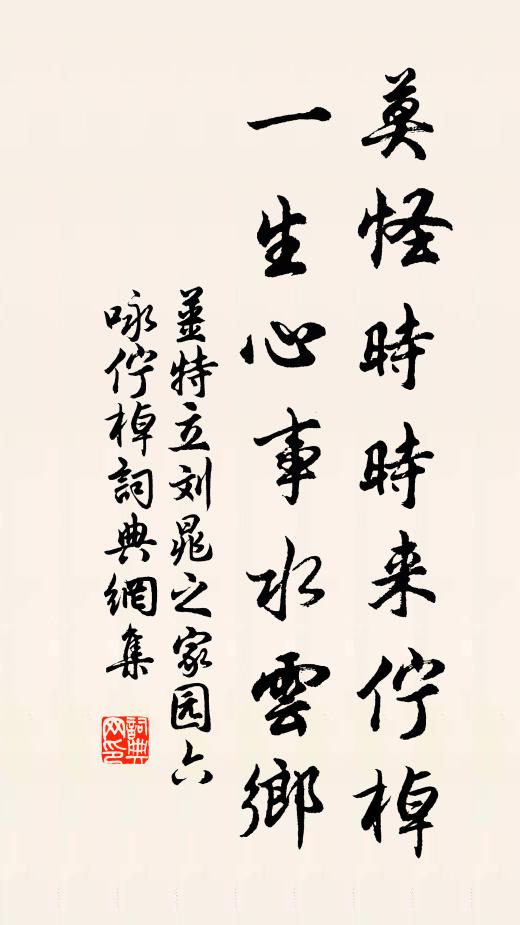 莫怪時時来佇棹
一生心事水雲鄉
姜特立刘晁之家园六
咏佇棹詞典網集
詞典網印